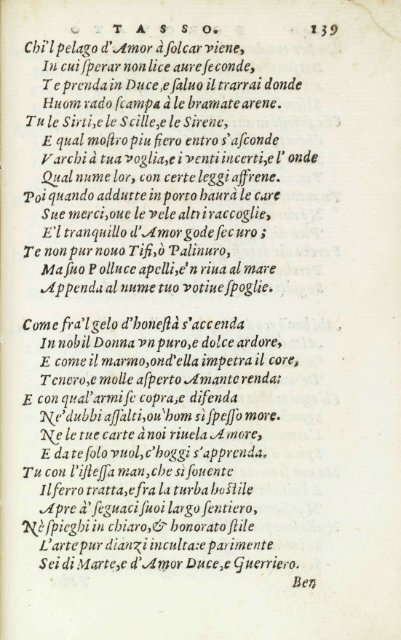 TASSO. 139
Chi'l pelago d'Amor à solcar viene,
In cui sperar non lice aure seconde,
Te prenda in Duce, e saluo il trarrai donde
Huom rado scampa à le bramate arene.
Tu le Sirti, e le Scille, e le Sirene,
E qual mostro piu fiero entro s'asconde
Varchi à tua voglia, e i venti incerti, e l'onde
Qual nume lor, con certe leggi affrene.
Poi quando addutte in porto haurà le care
Sue merci, oue le vele altri raccoglie,
E'l tranquillo d'Amor gode securo;
Te non pur nouo Tifi, ò Palinuro,
Ma suo Polluce apelli, e'n riua al mare
Appenda al nume tuo votiue spoglie.
Come fra'l gelo d'honestà s'accenda
In nobil Donna vn puro, e dolce ardore,
E come il marmo, ond'ella impetra il core,
Tenero, e molle asperto Amante renda:
E con qual'armi se copra, e difenda
Ne' dubbi assalti, ou'hom sì spesso more.
Ne le tue carte à noi riuela Amore,
E da te solo vuol, c'hoggi s'apprenda.
Tu con l'istessa man, che sì souente
Il ferro tratta, e fra la turba hostile
Apre à' seguaci suoi largo sentiero,
Nè spieghi in chiaro, & honorato stile
L'arte pur dianzi inculta: e parimente
Sei di Marte, e d'Amor Duce, e Guerriero.
Ben